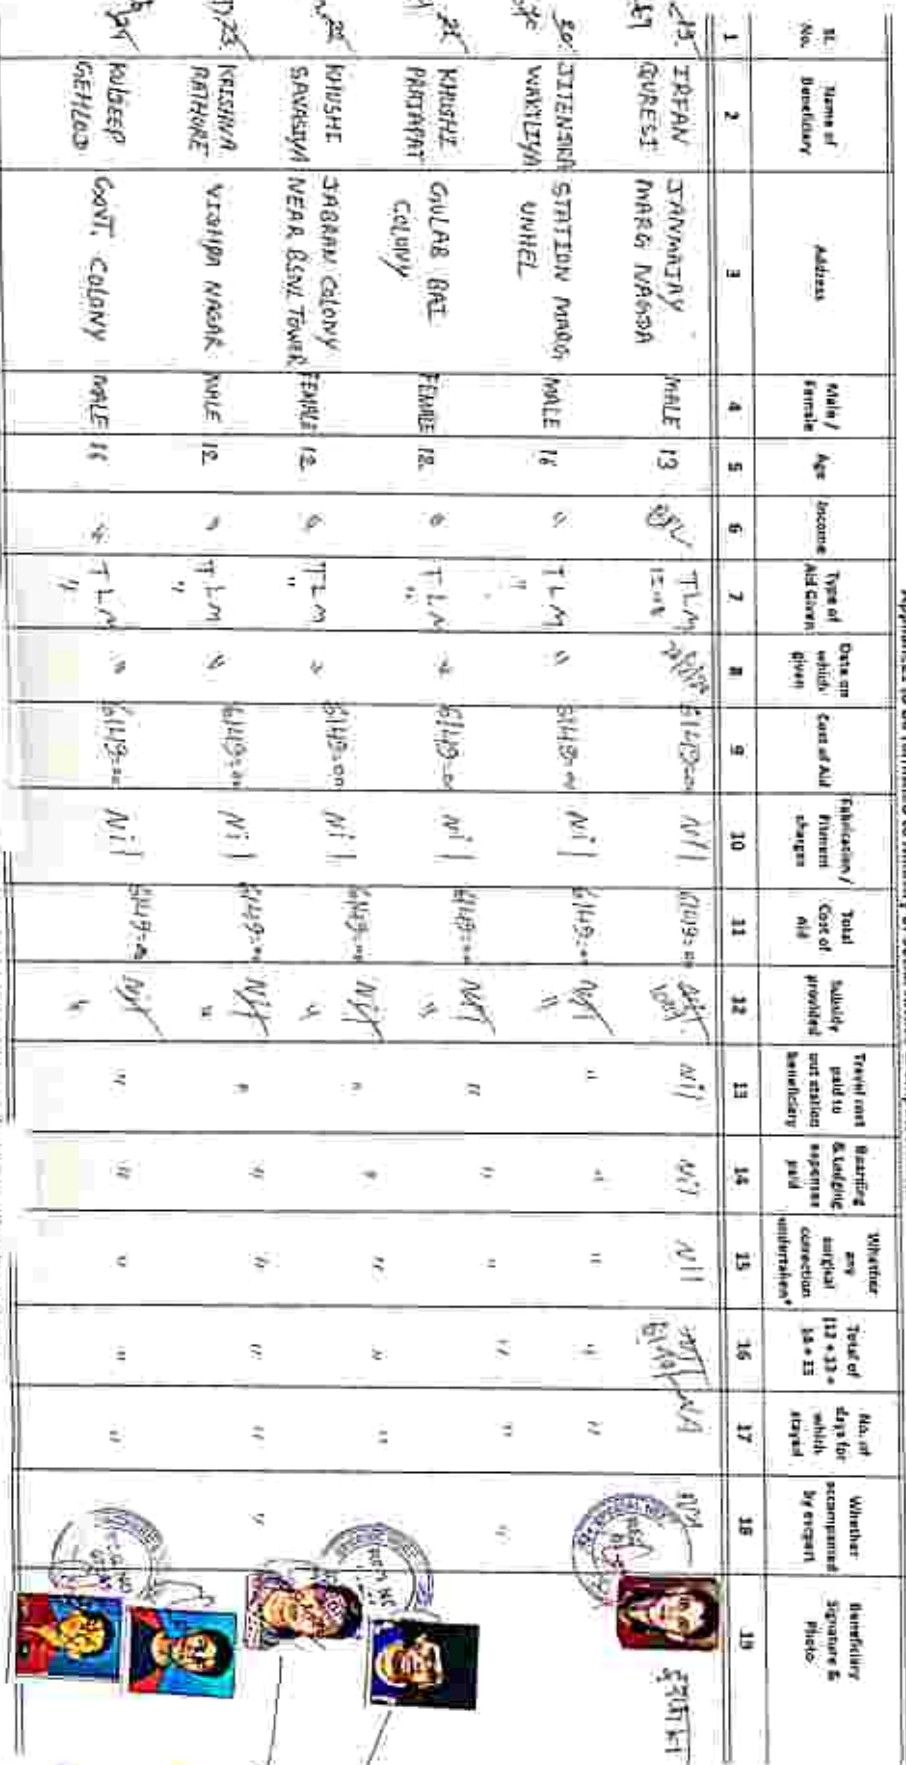 Sl. No.
Name of Beneficiary
Address
Male / Female
Age
Income
Type of Aid Given
Date on which given
Cost of Aid
Fabrication / Fitment charges
Total Cost of Aid
Subsidy provided
Travel cost paid to out station beneficiary
Boarding & Lodging expenses paid
Whether any surgical correction undertaken*
Total of
No. of days for which stayed
Whether accompanied by escort
Beneficiary Signature & Photo
1 2 3 4 5 6 7 8 9 10 11 12 13 14 15 16 17 18 19
19. IRFAN QURESI JANMAJAY MARG NAGDA MALE 13 TLM 6149=00 Nil 6149=00 Nil Nil Nil NA NA
20. JITENDRA WAKTLIYA STATION MARG UNHEL MALE 16 " TLM " " 6149=00 Nil 6149=00 " " " " " "
21 KHUSHI PRAJAPAT GULAB BAI COLONY FEMALE 12 " TLM " " 6149=00 Nil 6149=00 " " " " " " "
22 KHUSHI SAVASIYA JABRAN COLONY NEAR BSNL TOWER FEMALE 12 " TLM " " 6149=00 Nil 6149=00 " " " " " "
23. KRISHNA RATHORE NAGAR MALE 12 " TLM " " 6149=00 Nil 6149=00 " " " " " " "
24 KULDEEP GEHLOD GOVT. COLONY MALE 16 " TLM " " 6149=00 Nil 6149=00 " " " " " "